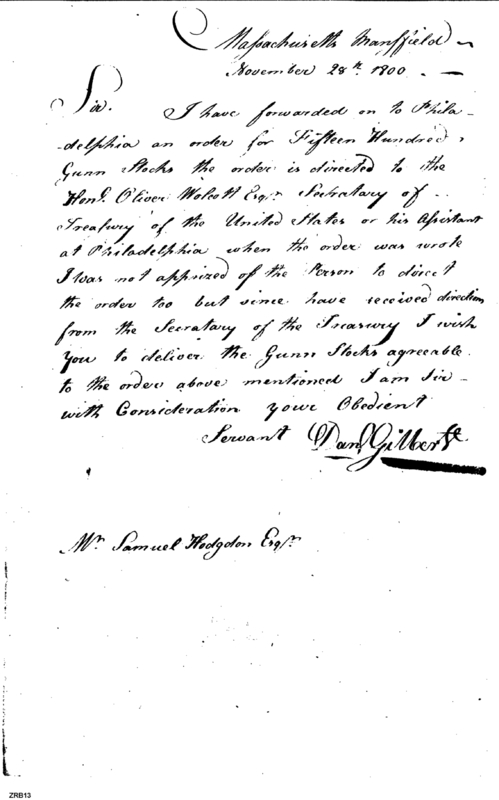 Massachusetts Mansfield
November 28th 1800.
Sir. I have forwarded on to Phila-
-delphia an order for Fifteen Hundred
Gunn Stocks the order is directed to the
Honl. Oliver Wolcott Esqr. Secratary of
Treasury of the United States or his Assistant
at Philadelphia when the order was wrote
I was not apprized of the Person to direct
the order too but since have received direction
from the Secratary of the Treasury I wish
You to deliver the Gunn Stocks agreeable
to the order above mentioned I am Sir
with Consideration your Obedient
Servant Danl. Gilbert
Mr. Samuel Hodgdon Esqr.
ZRB13